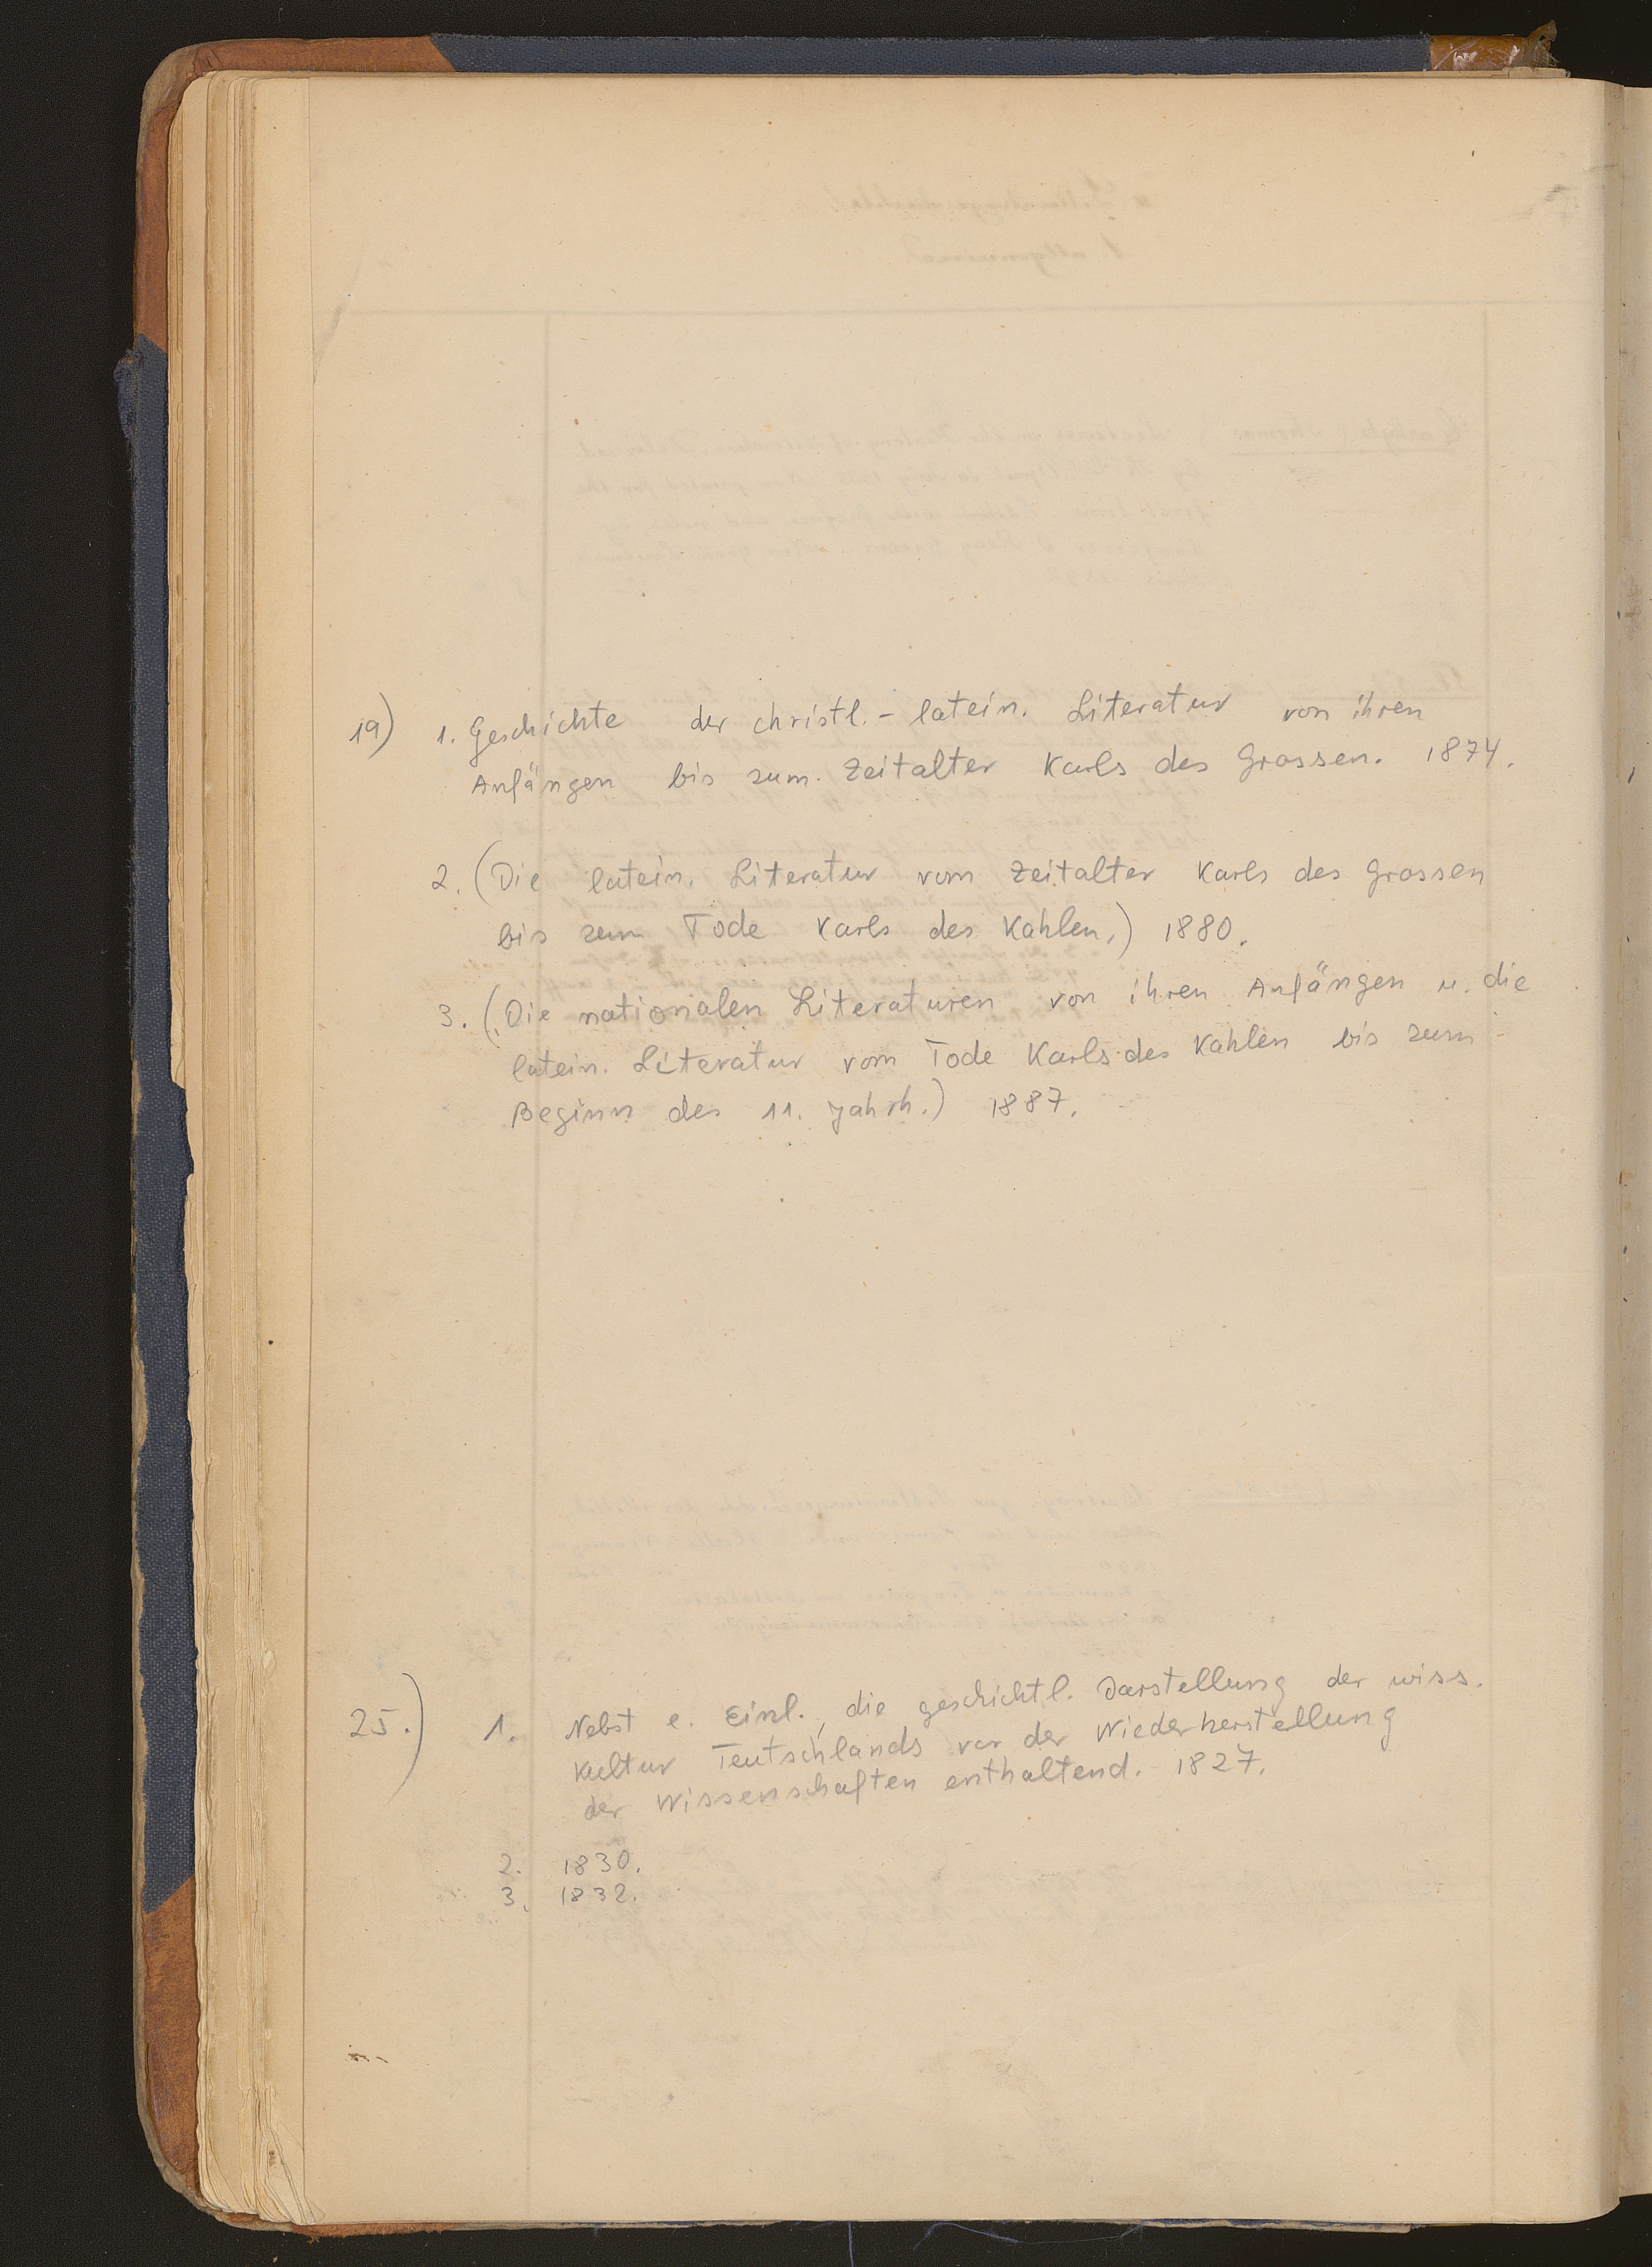 19) 1. Geschichte der christl.- latein. Literatur von ihren
Anfängen bis zum Zeitalter Karls des Grossen. 1874.
2. (Die latein. Literatur vom Zeitalter Karls des Grossen
bis zum Tode Karls des Kahlen.) 1880.
3. (Die nationalen Literaturen von ihren Anfängen u. die
latein. Literatur vom Tode Karls des Kahlen bis zum
Beginn des 11. Jahrh.) 1887.
25.) 1. Nebst e. Einl., die geschichtl. Darstellung der wiss.
Kultur Teutschlands vor der Wiederherstellung
der Wissenschaften enthaltend. 1827.
2. 1830.
3. 1832.